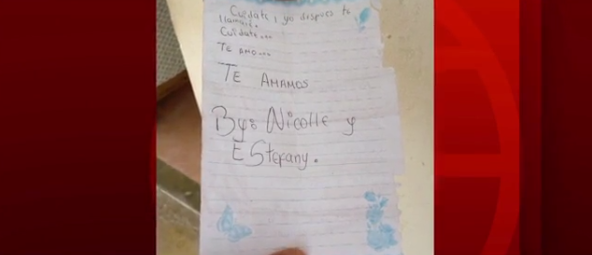 Cuidate, yo despues te
llamare.
Cuidate...
Te amo...
Te Amamos
By: Nicolle y
EStefany.